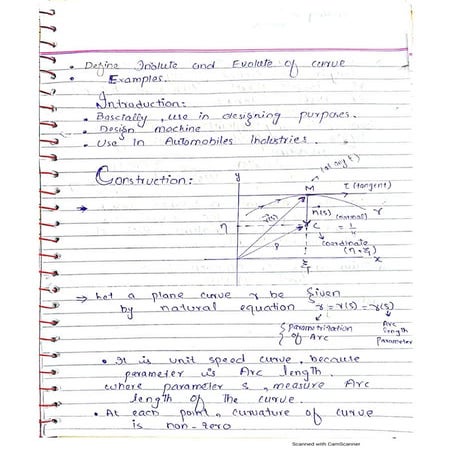 • Define Inolute and Evolute of curve
• Examples.
Introduction:
• Bascially, use in designing purposes.
• Design machine
• Use In Automobiles Industries.
Construction:
y
M
τ (tangent)
r(s)
n(s)
(normal)
γ
η
C
= 1/k
ρ
coordinate
x
⇒ Let a plane curve γ be given
by natural equation r = r(s) = γ(s)
parametrization
of Arc
Arc
length
Parameter
• It is unit speed curve, because
parameter is Arc length.
where parameter s, measure Arc
length of the curve.
• At each point, curvature of curve
is non-zero
Scanned with CamScanner